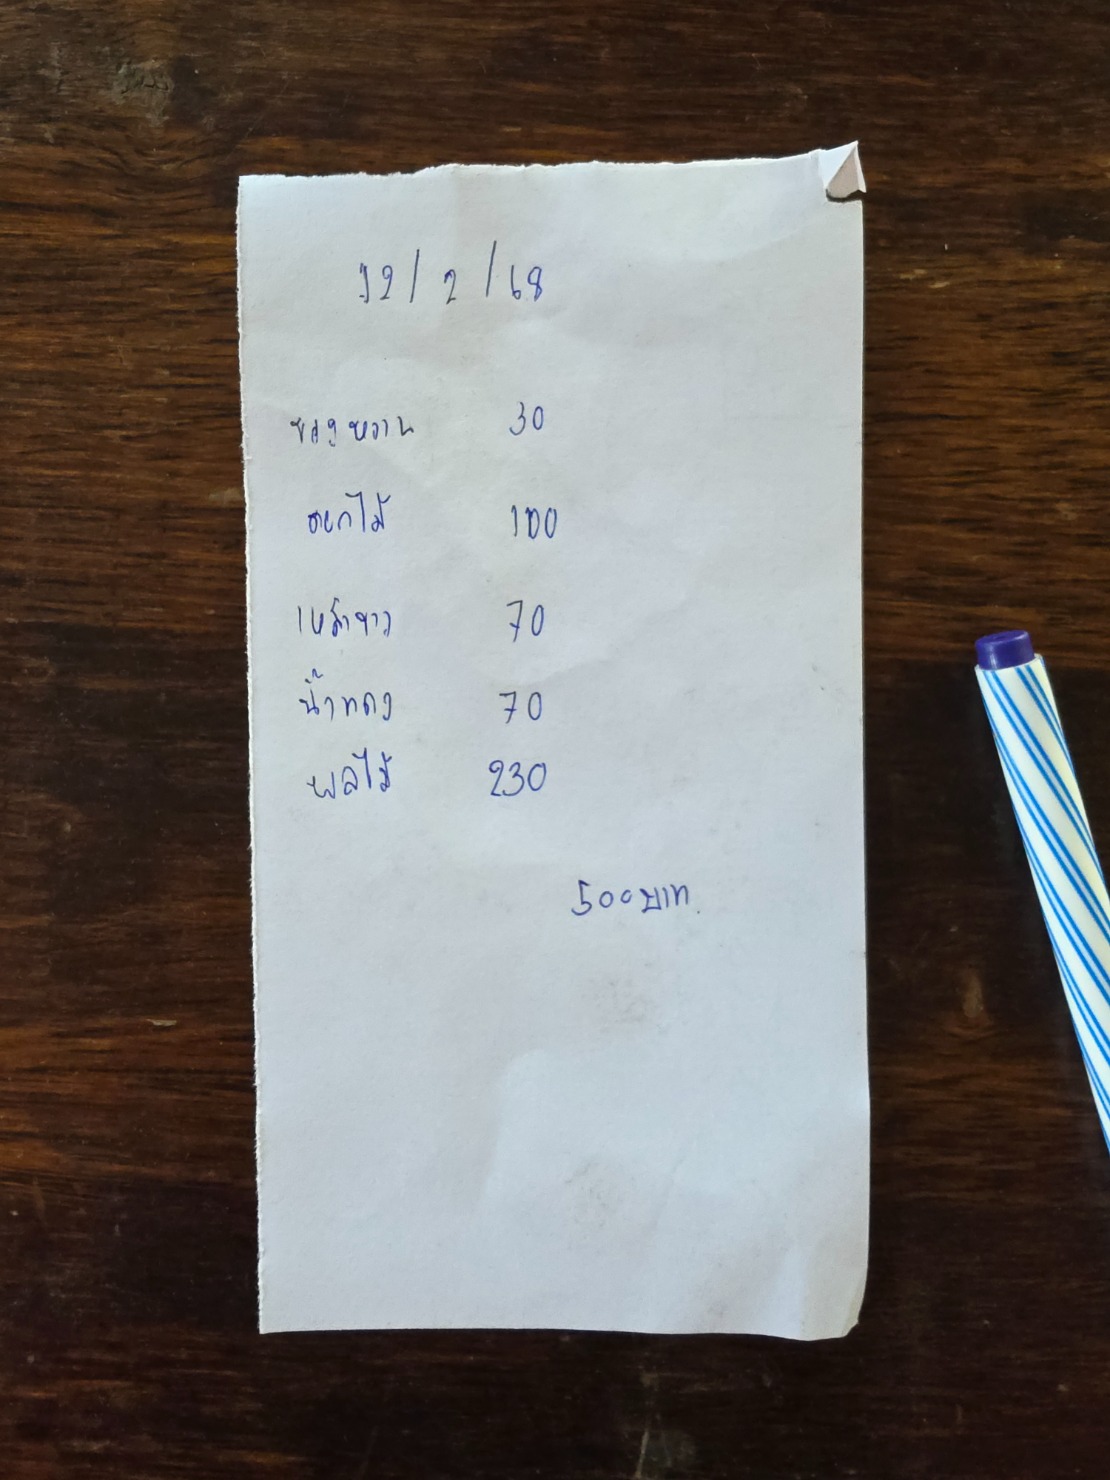 12/2/68
ของหวาน 30
ดอกไม้ 100
เหล้าขาว 70
น้ำแดง 70
ผลไม้ 230
500 บาท